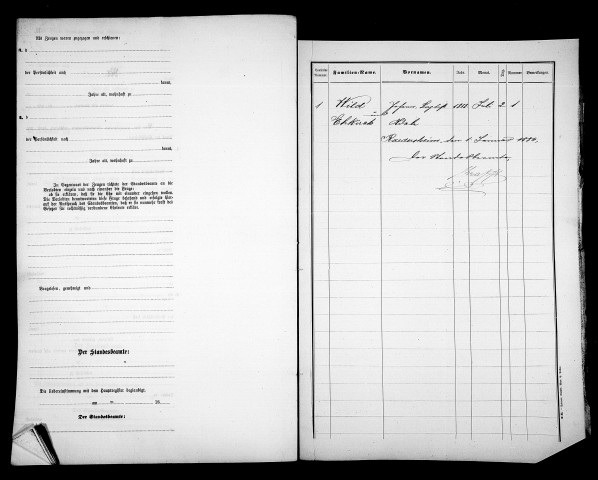 Als Zeugen waren zugezogen und erschienen:
der Persönlichkeit nach
kannt,
Jahre alt, wohnhaft zu
der Persönlichkeit nach
kannt,
Jahre alt, wohnhaft zu
In Gegenwart der Zeugen richtete der Standesbeamte an die
Verlobten einzeln und nach einander die Frage:
ob sie erklären, daß sie die Ehe mit einander eingehen wollen.
Die Verlobten beantworteten diese Frage bejahend und erfolgte hier-
auf der Ausspruch des Standesbeamten, daß er sie nunmehr kraft des
Gesetzes für rechtmäßig verbundene Eheleute erkläre.
Vorgelesen, genehmigt und
Der Standesbeamte:
Die Uebereinstimmung mit dem Hauptregister beglaubigt.
am ten 18
Der Standesbeamte:
Familien-Name. Vornamen. Jahr. Monat. Tag. Nummer. Bemerkungen.
1 Wild Johann 1888 Feb. 2 1
den 1. Januar 1889.
Der Standesbeamte,